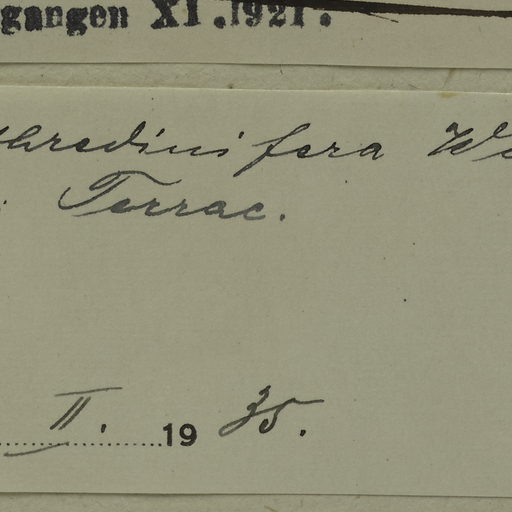 gangen XI.1921.
thredinifera We
Terrac.
II. 1935.